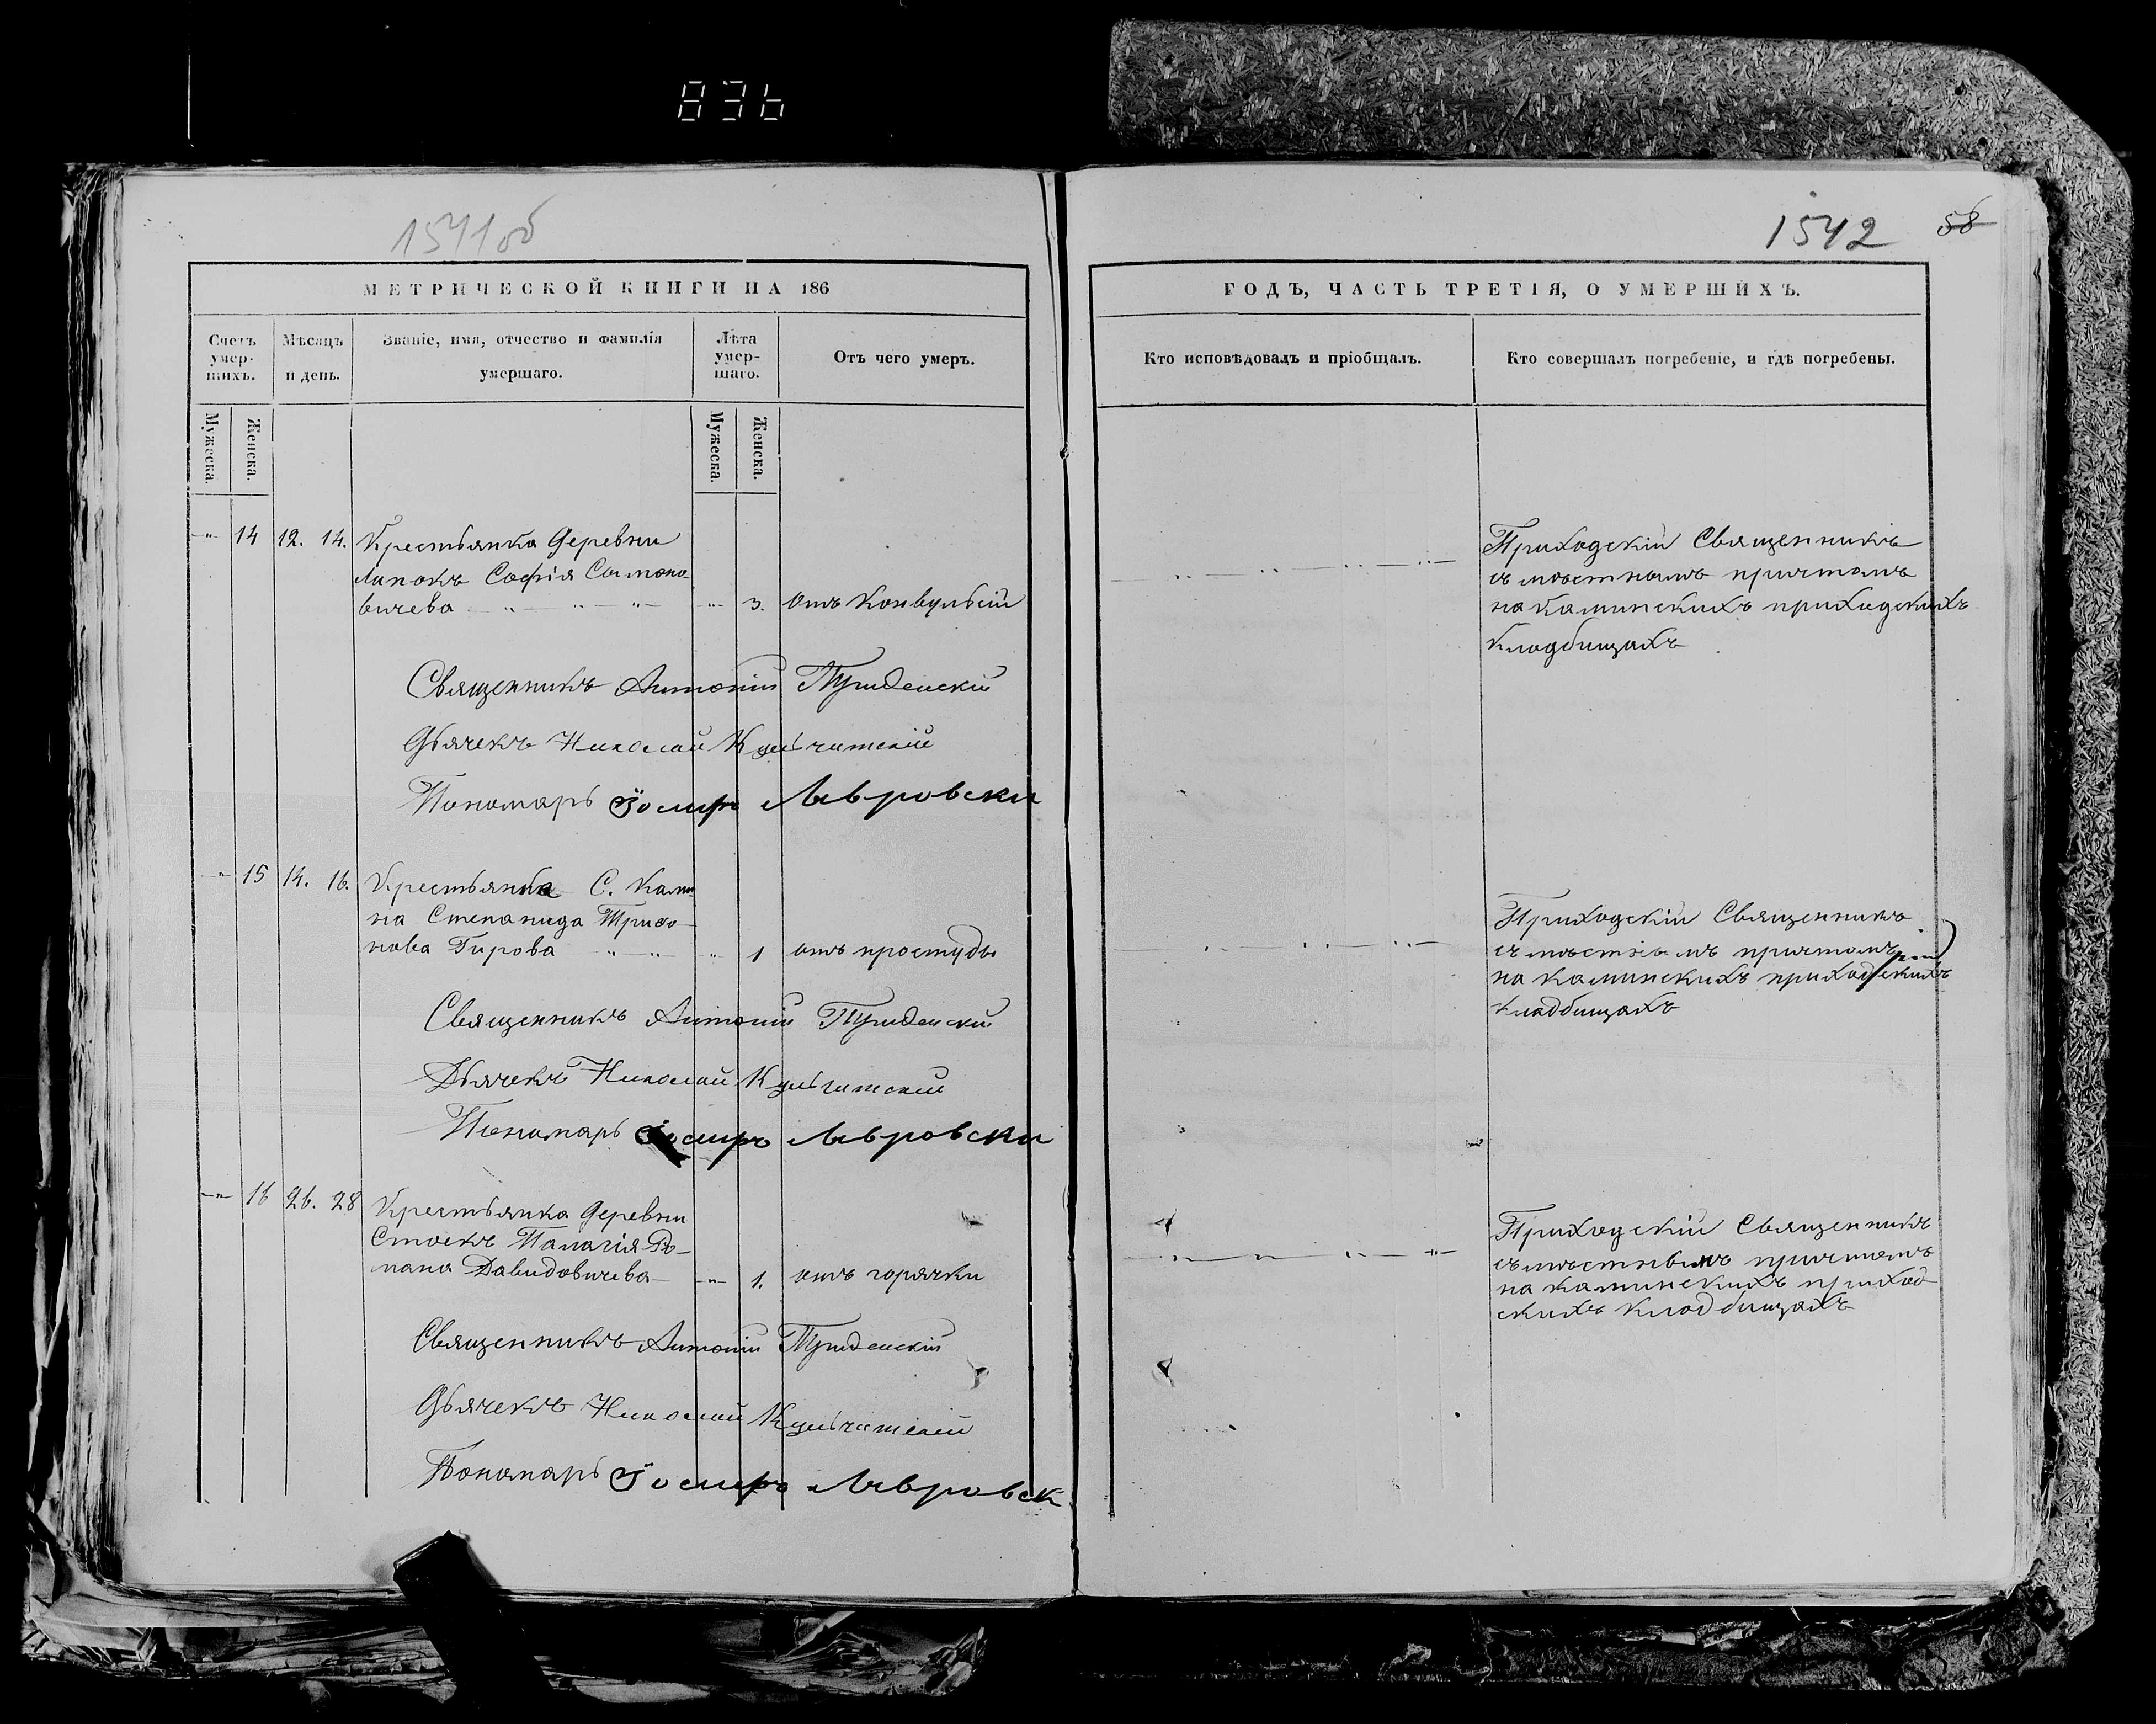 836
1541об
1542 58
МЕТРИЧЕСКОЙ КНИГИ НА 186
ГОДЪ, ЧАСТЬ ТРЕТІЯ, О УМЕРШИХЪ.
Счетъ умер-шихъ.
Мѣсяцъ и день.
Званіе, имя, отчество и фамилія умершаго.
Лѣта умер-шаго.
Отъ чего умеръ.
Кто исповѣдовалъ и пріобщалъ.
Кто совершалъ погребеніе, и гдѣ погребены.
Мужеска.
Женска.
Мужеска.
Женска.
14 12. 14. Крестьянка деревни
Софія
вичева 3. отъ Конвульсій
Приходскій Священникъ
съ мѣстнымъ причтомъ
на каминскихъ приходскихъ
кладбищахъ
Священникъ Антоній
Дьячекъ Николай Кульчитскій
Пономарь Іосифъ Лавровски
15 14. 16. Крестьянка С. Ками
на Степанида Трифо
нова Гирова 1 отъ простуды
Приходскій Священникъ
съ мѣстнымъ причтомъ
на каминскихъ приходскихъ
кладбищахъ
Священникъ Антоній
Дьячекъ Николай Кульчитскій
Пономарь Іосифъ Лавровски
16 26. 28 Крестьянка деревни
Стоекъ Палагія Ро-
мана Давидовичева 1. отъ горячки
Приходскій Священникъ
съ мѣстнымъ причтомъ
на каминскихъ приход
скихъ кладбищахъ
Священникъ Антоній
Дьячекъ Николай Кульчитскій
Пономарь Іосифъ Лавровск